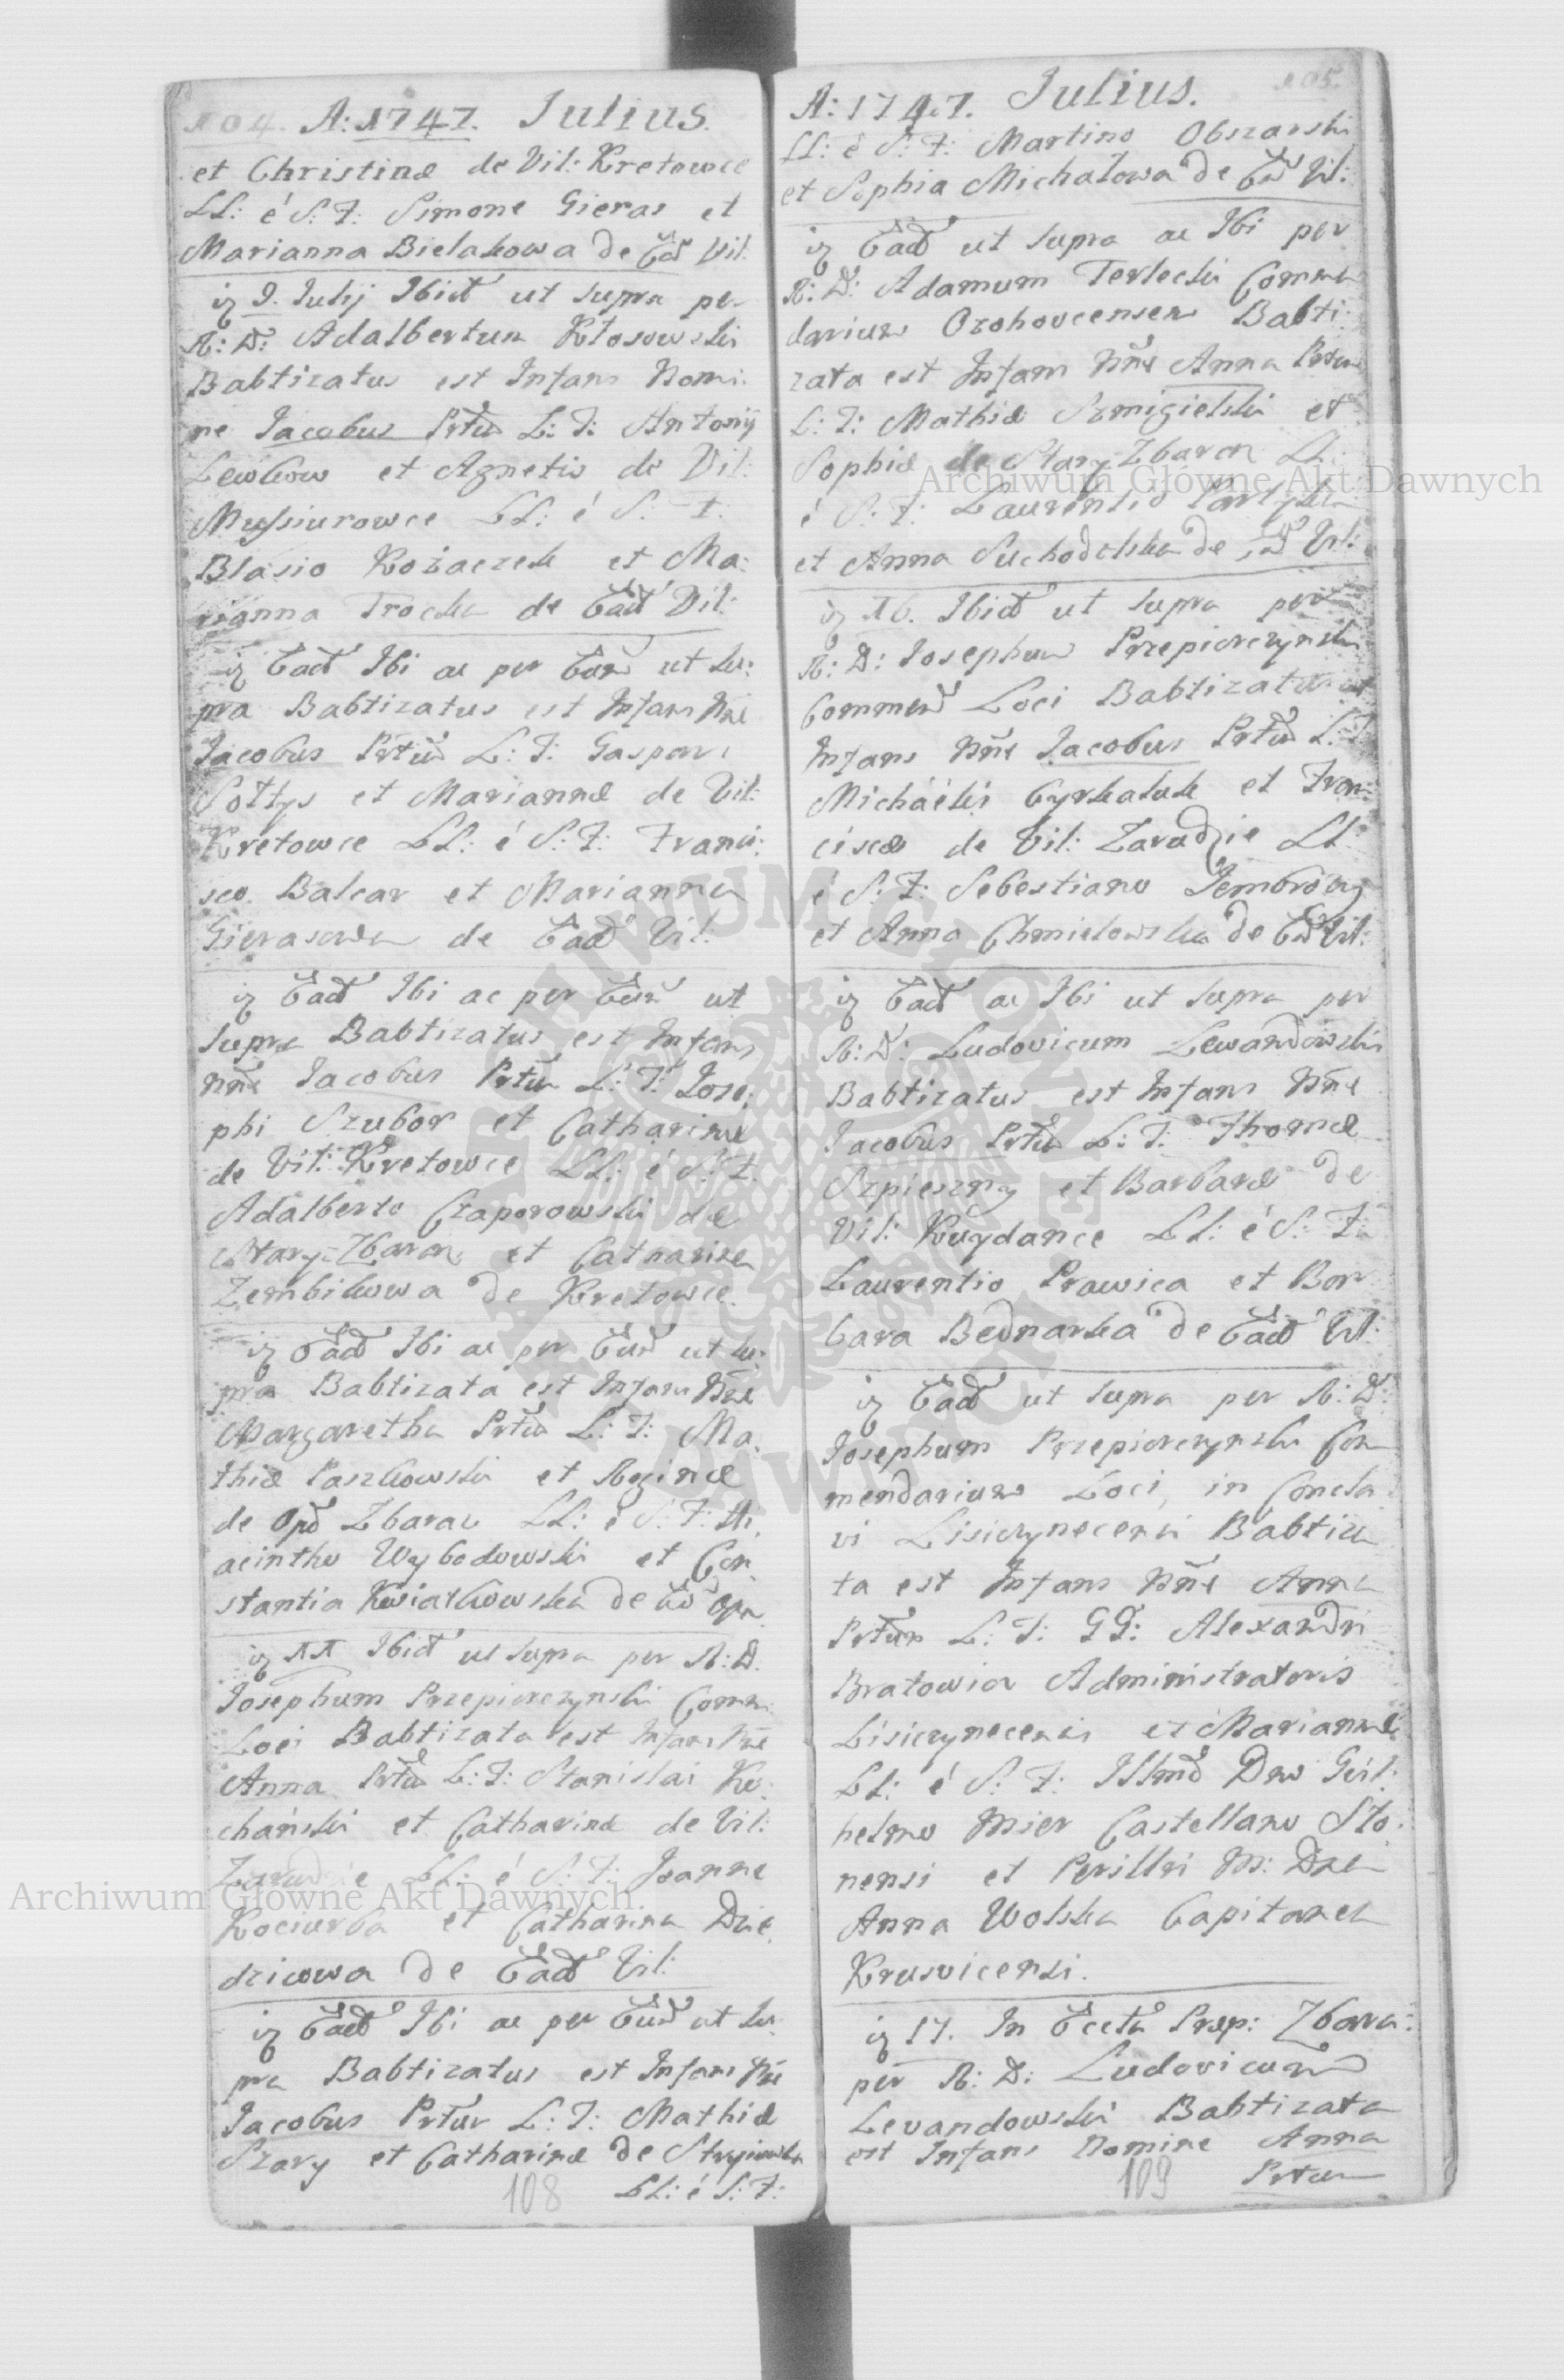 104. A: 1747. Iulius.
et Christinæ de Vil: Kretowce
LL: é S: F: Simone Gieras et
Marianna Bielakowa de Ead Vil:
9. Iulij Ibid ut supra per
R: D: Adalbertum Kłosowski
Babtizatus est Infans Nomi:
ne Iacobus Prtũ L: T: Antonij
Lewkow et Agnetis de Vil:
Mussiurowce LL: é S: F:
Blasio Kozaczek et Ma:
rianna Trocka de Ead Vil:
Ead Ibi ac per Eun ut su:
pra Babtizatus est Infans Nne
Iacobus Prtũ L: T: Gaspari
Sołtys et Mariannæ de Vil:
Kretowce LL: é S: F: Franci:
sco Balcar et Marianna
Gierasowa de Ead Vil:
Ead Ibi ac per Eun ut
supra Babtizatus est Infans
Nne Iacobus Prtũ L: T: Iose:
phi Szubar et Catharinæ
de Vil: Kretowce LL: é S: F:
Adalberto Czaporowski de
Stary Zbaraz et Catharina
Zembikowa de Kretowce.
Ead Ibi ac per Eun ut su:
pra Babtizata est Infans Nne
Margaretha Prtũ L: T: Ma:
thiæ Paszkowski et Reginæ
de Opd Zbaraz LL: é S: F: Hi:
acintho Wybodowski et Con:
stantia Kwiatkowska de Ead Opd.
11 Ibid ut supra per R: D.
Iosephum Przepiorczynski Comm:
Loci Babtizata est Infans Nne
Anna Prtũ L: T: Stanislai Ko:
chański et Catharinæ de Vil:
Zarudzie LL: é S: F: Ioanne
Kociurba et Catharina Dzie:
dzicowa de Ead Vil:
Ead Ibi ac per Eun ut su:
pra Babtizatus est Infans Nne
Iacobus Prtũr L: T: Mathiæ
Szary et Catharinæ de Stryiowka
LL: é S: F:
108
105.
A: 1747. Iulius.
LL: é S: F: Martino Obszarski
et Sophia Michałowa de Ead Vil:
Ead ut supra ac Ibi per
R: D: Adamum Terlecki Commen
darium Ozohovcensem Babti:
zata est Infans Nne Anna Prtum
L: T: Mathiæ Szmigielski et
Sophiæ de Stary Zbaraz LL:
é S: F: Laurentio
et Anna Suchodolska de Ead Vil:
16. Ibid ut supra per
R: D: Iosephum Przepiorczynski
Commend Loci Babtizatus est
Infans Nne Iacobus Prtũ L: T
Michaëlis Cyrkaluk et Fran:
ciscæ de Vil: Zarudzie LL:
é S: F: Sebestiano
et Anna Chmielowska de Ead Vil:
Ead ac Ibi ut supra per
R: D: Ludovicum Lewandowski
Babtizatus est Infans Nne
Iacobus Prtũ L: T: Thomæ
Szpieszny et Barbaræ de
Vil: Kuydance LL: é S: F:
Laurentio Prawica et Bar
bara Bednarka de Ead Vil:
Ead ut supra per R: D:
Iosephum Przepiorczynski Com
mendarium Loci, in Concla
vi Lisiczynecensi Babtiza
ta est Infans Nne Anna
Prtũm L: T: GG: Alexandri
Bratowicz Administratoris
Lisiczynecensis et Mariannæ
LL: é S: F: Illmo Dno Guil:
helmo Mier Castellano Sło:
nensi et Perillri M: Dna
Anna Wolska Capitanea
Krusvicensi.
17. In Eccla Præp: Zbara:
per R: D: Ludovicum
Levandowski Babtizata
est Infans Nomine Anna
Prtum
109
Archiwum Główne Akt Dawnych
Archiwum Główne Akt Dawnych
ARCHIWUM GŁÓWNE AKT DAWNYCH